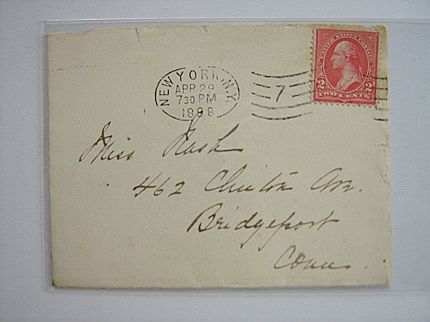 NEW YORK, N.Y.
APR 29
730 PM
1898
7
UNITED STATES POSTAGE
2 2
TWO CENTS
Miss Nash
462 Clinton Ave.
Bridgeport
Conn.